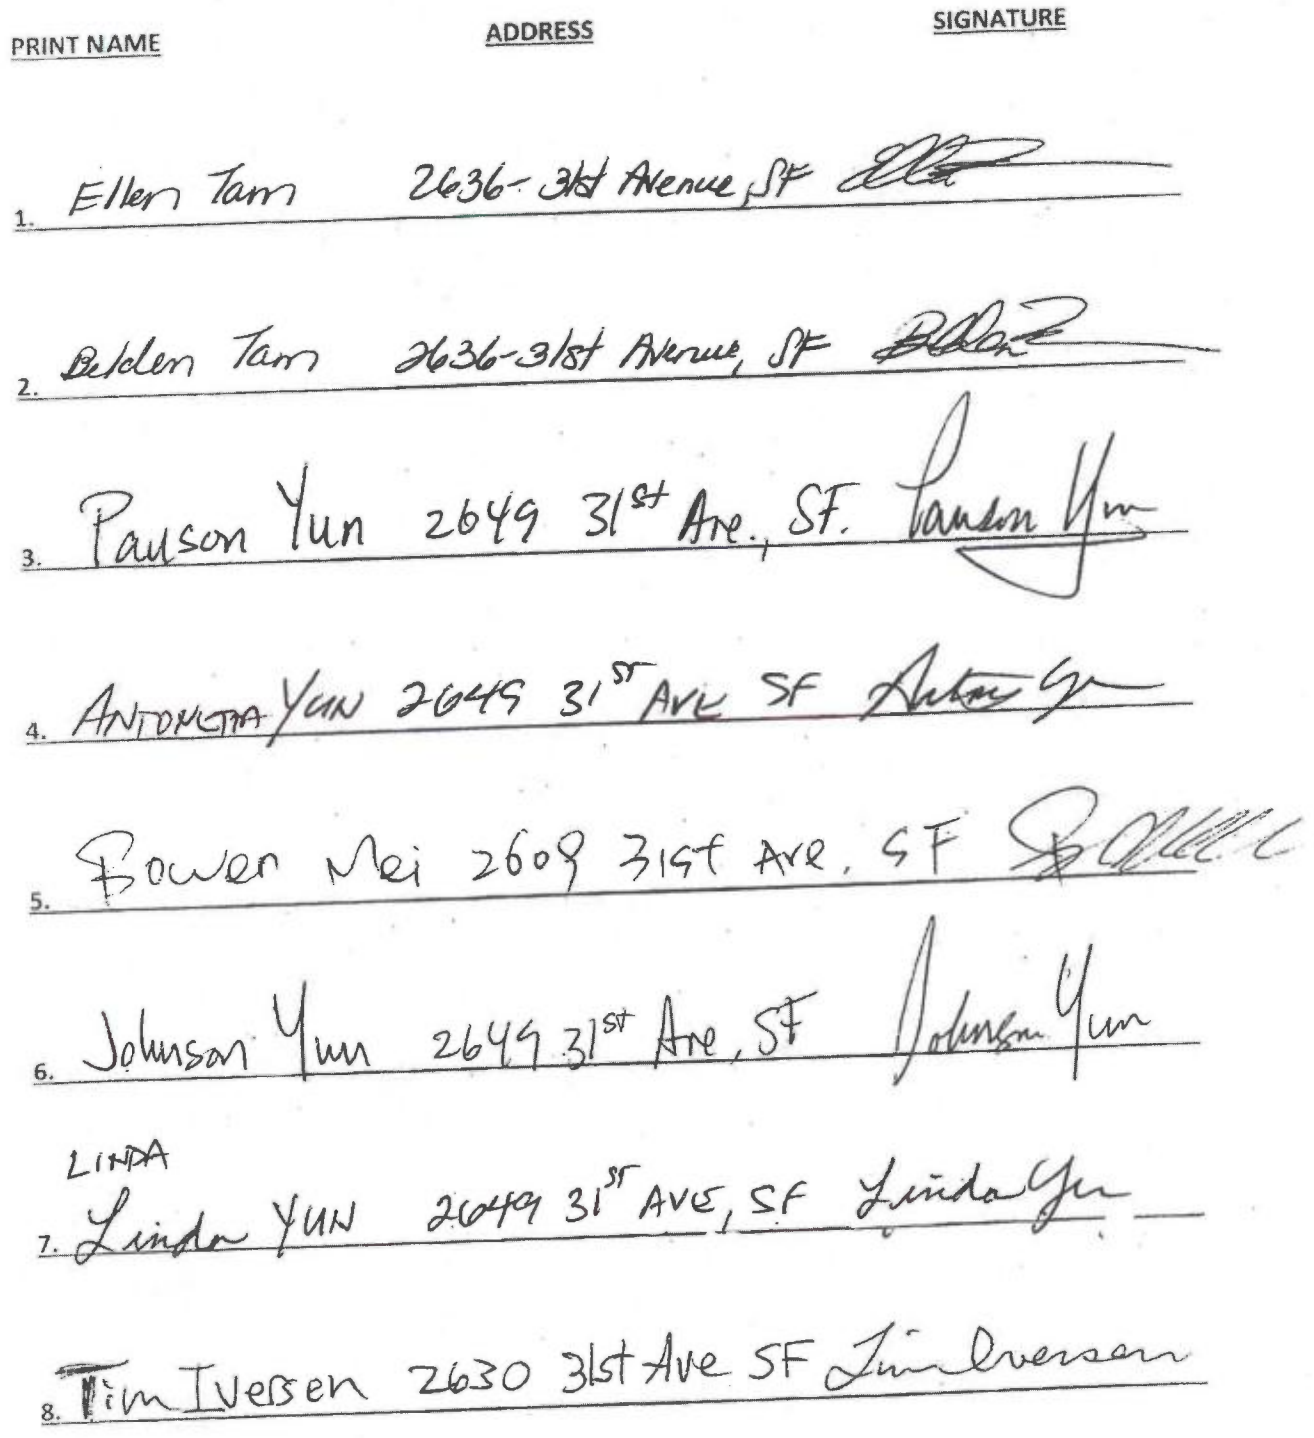 PRINT NAME ADDRESS SIGNATURE
1. Ellen Tam 2636-31st Avenue, SF
2. Belden Tam 2636-31st Avenue, SF
3. Pauson Yun 2649 31st Ave., SF. Pauson Yun
4. ANTONETTA YUN 2649 31ST AVE SF
5. Bowen Mei 2609 31st Ave. SF
6. Johnson Yun 2649 31st Ave, SF Johnson Yun
LINDA
7. Linda YUN 2649 31ST AVE, SF Linda Yun
8. Tim Iversen 2630 31st Ave SF Tim Iversen